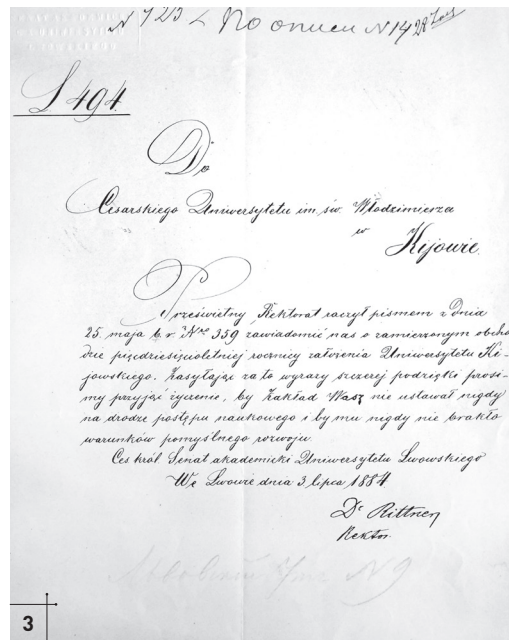 N 723 По описи N 14
L 494.
Do
Cesarskiego Uniwersytetu im. św. Włodzimierza
w
Kijowie.
Prześwietny Rektorat raczył pismem z dnia
25. maja b. r. Nro 359 zawiadomić nas o zamierzonym obcho
dzie pięćdziesięcioletniej rocznicy założenia Uniwersytetu Ki-
jowskiego. Zasyłając za to wyrazy szczerej podzięki prosi-
my przyjąć życzenie, by Zakład Wasz nie ustawał nigdy
na drodze postępu naukowego i by mu nigdy nie brakło
warunków pomyślnego rozwoju.
Ces. król. Senat akademicki Uniwersytetu Lwowskiego
We Lwowie dnia 3 lipca 1884
Dr Rittner
Rektor.
N 9
3